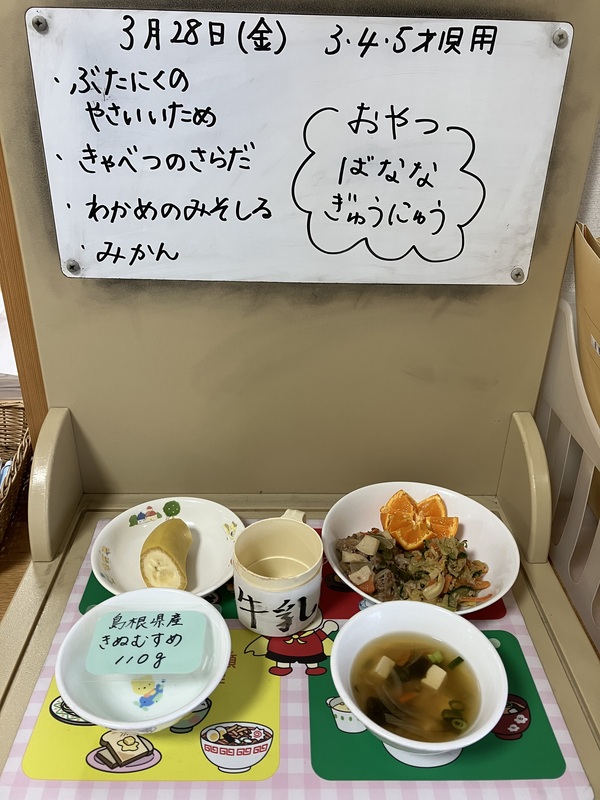 3月28日(金) 3・4・5才児用
・ぶたにくの
やさいいため
・きゃべつのさらだ
・わかめのみそしる
・みかん
おやつ
ばなな
ぎゅうにゅう
牛乳
島根県産
きぬむすめ
110g